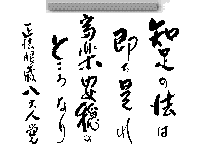 知足の法は
即ち是れ
富楽安穏の
ところなり
正法眼蔵八大人覚